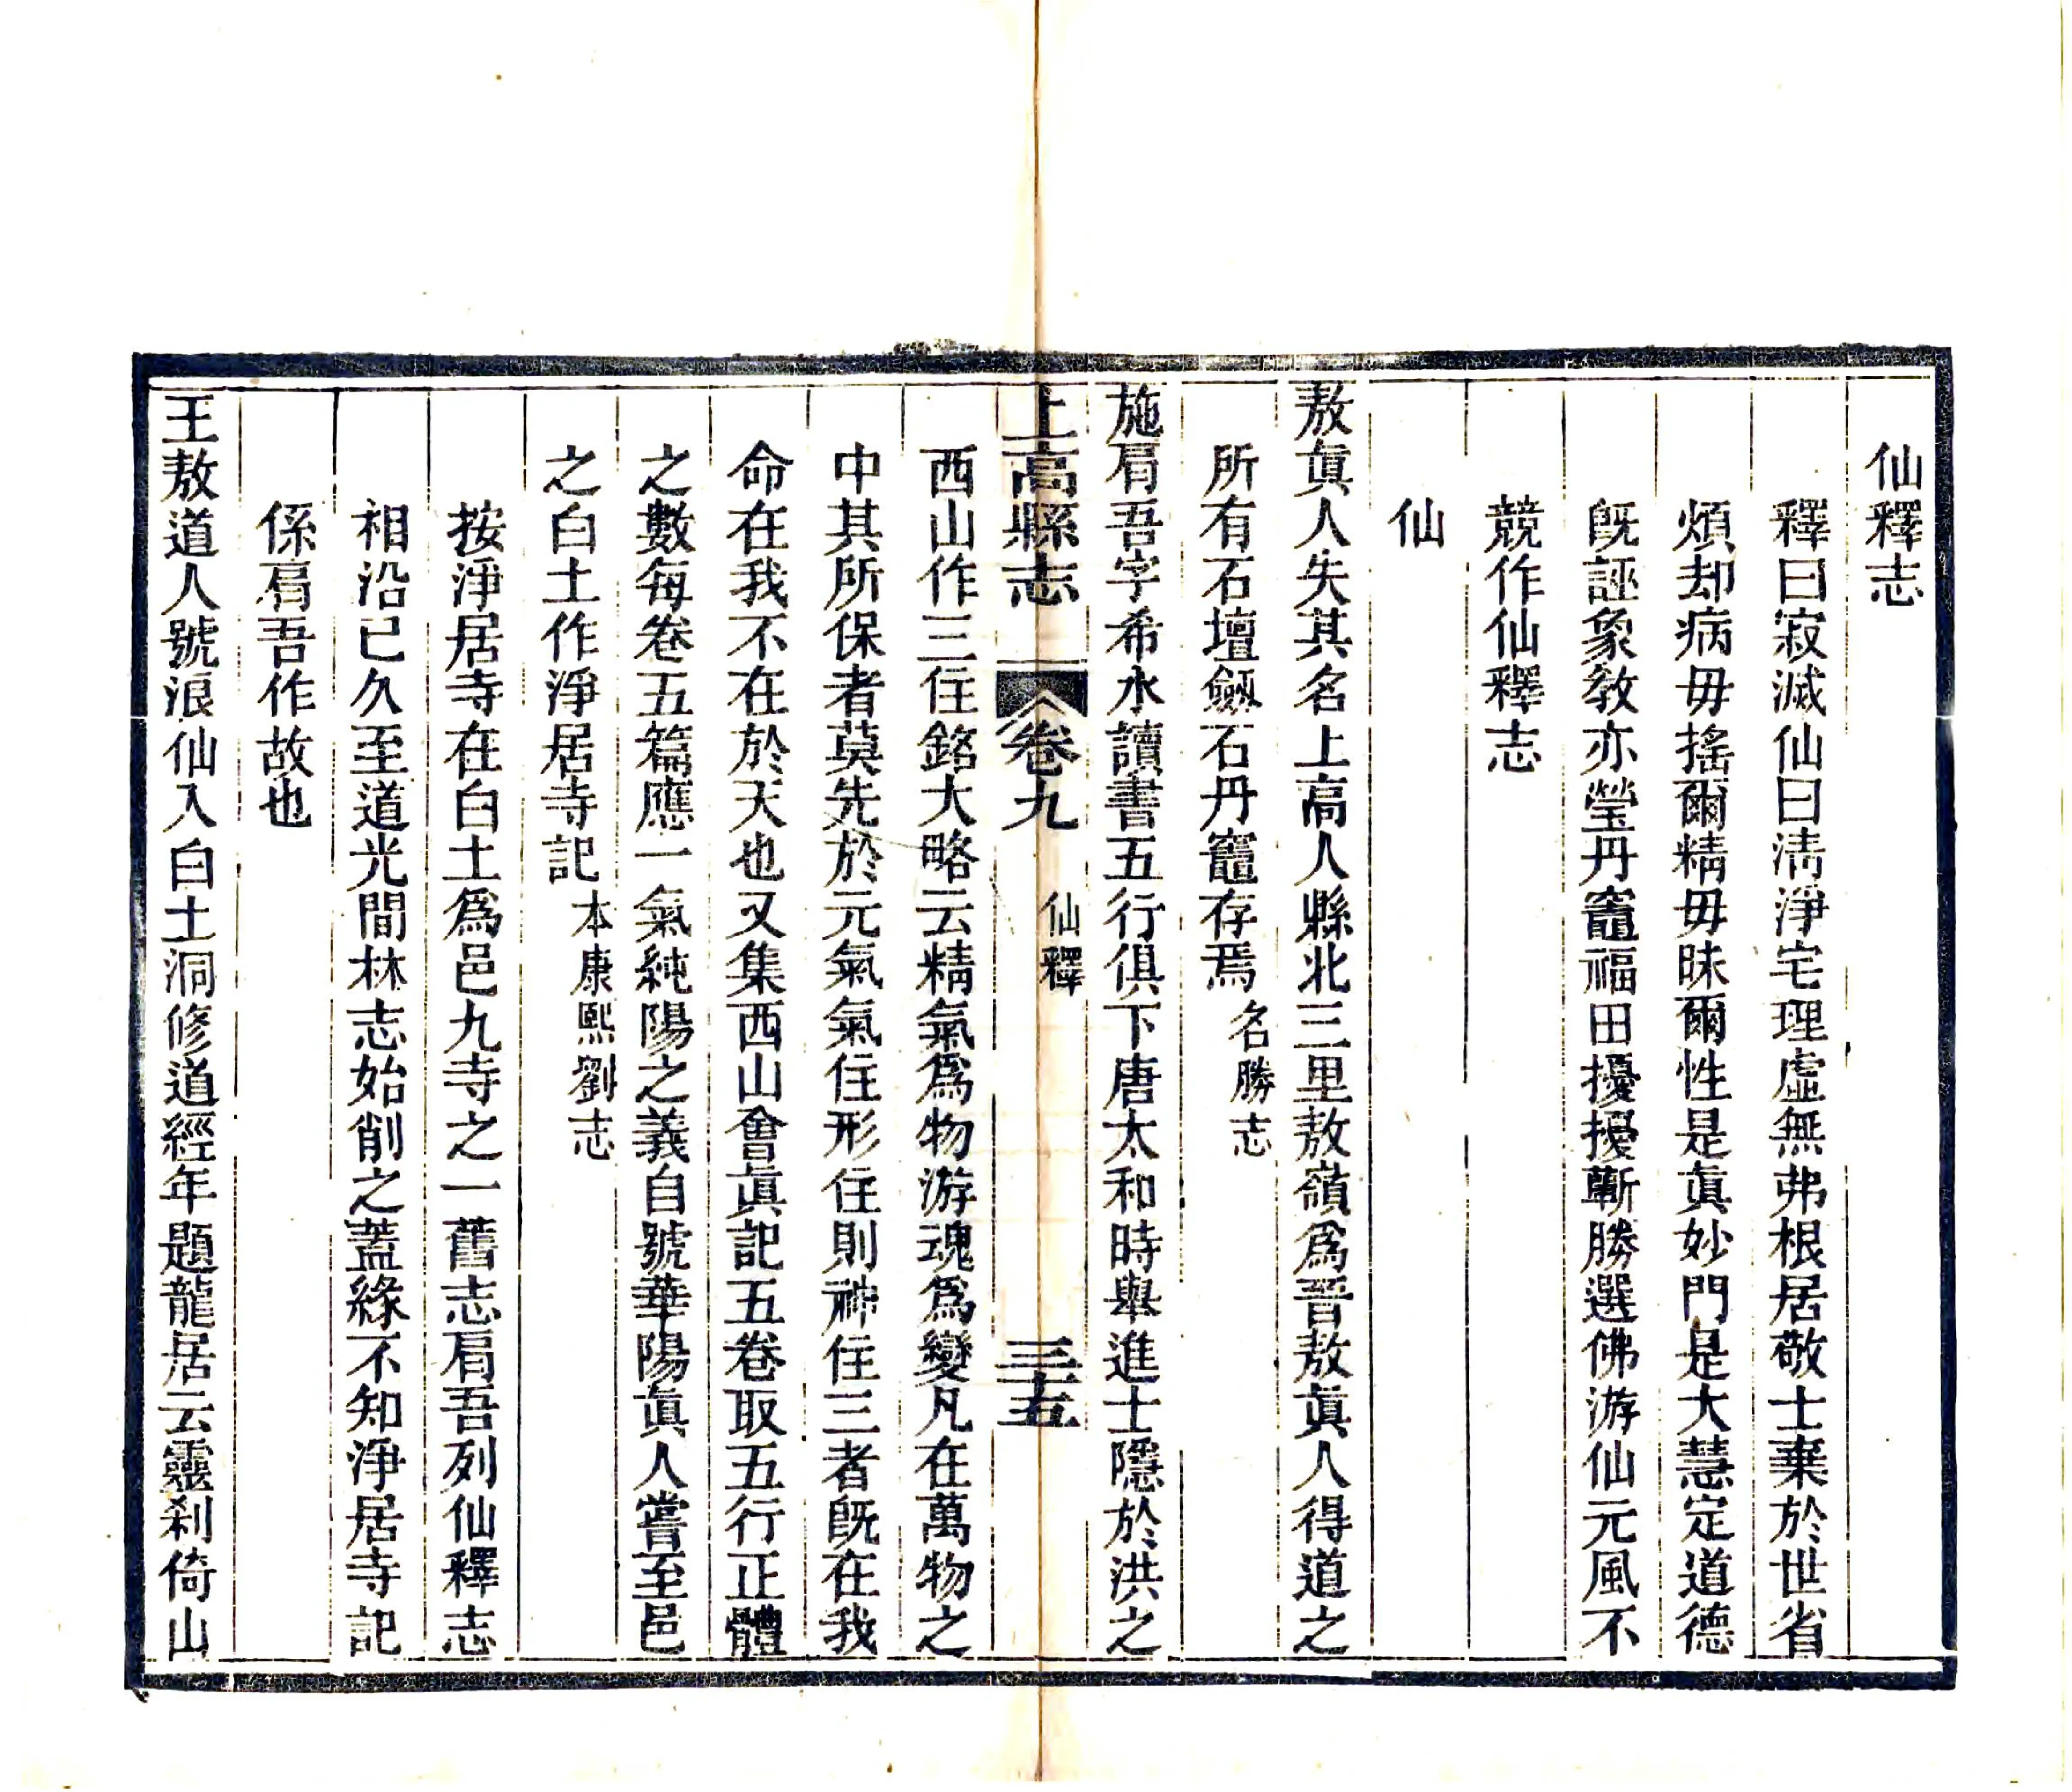 仙釋志
釋曰寂滅仙曰淸淨宅理虛無弗根居敬士棄於世省
煩却病毋搖爾精毋昧爾性是眞妙門是大慧定道德
旣誣象敎亦瑩丹竈福田擾擾蘄勝選佛游仙元風不
競作仙釋志
仙
敖眞人失其名上高人縣北三里敖嶺爲晉敖眞人得道之
所有石壇劔石丹竈存焉名勝志
施肩吾字希水讀書五行俱下唐太和時舉進士隱於洪之
上高縣志 卷九 仙釋 三五
西山作三住銘大略云精氣爲物游魂爲變凡在萬物之
中其所保者莫先於元氣氣住形住則神住三者旣在我
命在我不在於天也又集西山會眞記五卷取五行正體
之數每卷五篇應一氣純陽之義自號華陽眞人嘗至邑
之白土作淨居寺記本康熙劉志
按淨居寺在白土爲邑九寺之一舊志肩吾列仙釋志
相沿已久至道光間林志始削之蓋緣不知淨居寺記
係肩吾作故也
王敖道人號浪仙入白土洞修道經年題龍居云靈刹倚山